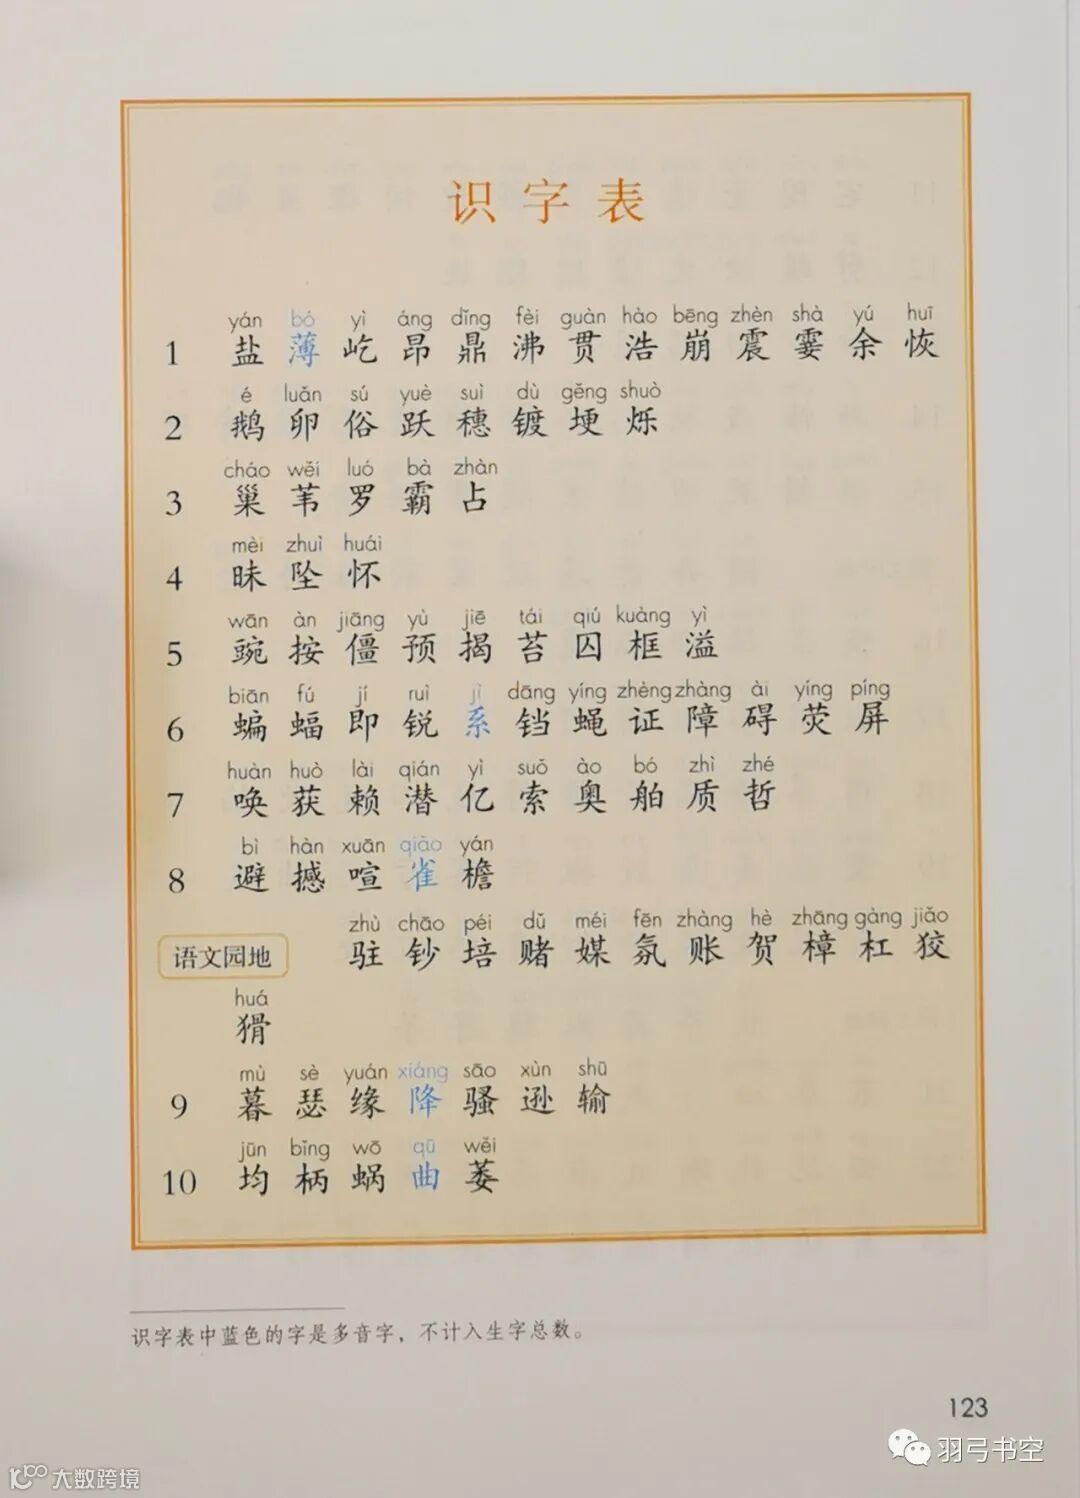 识字表
yán bó yì áng dǐng fèi guàn hào bēng zhèn shà yú huī
1 盐 薄 屹 昂 鼎 沸 贯 浩 崩 震 霎 余 恢
é luǎn sú yuè suì dù gěng shuò
2 鹅 卵 俗 跃 穗 镀 埂 烁
cháo wěi luó bà zhàn
3 巢 苇 罗 霸 占
mèi zhuì huái
4 昧 坠 怀
wān àn jiāng yù jiē tái qiú kuàng yì
5 豌 按 僵 预 揭 苔 囚 框 溢
biān fú jí ruì jì dāng yíng zhèng zhàng ài yíng píng
6 蝙 蝠 即 锐 系 铛 蝇 证 障 碍 荧 屏
huàn huò lài qián yì suǒ ào bó zhì zhé
7 唤 获 赖 潜 亿 索 奥 舶 质 哲
bì hàn xuān qiǎo yán
8 避 撼 喧 雀 檐
zhù chāo péi dǔ méi fēn zhàng hè zhāng gàng jiǎo
语文园地 驻 钞 培 赌 媒 氛 账 贺 樟 杠 狡
huá
猾
mù sè yuán xiáng sāo xùn shū
9 暮 瑟 缘 降 骚 逊 输
jūn bǐng wō qū wěi
10 均 柄 蜗 曲 萎
识字表中蓝色的字是多音字，不计入生字总数。
123
羽弓书空
大数跨境